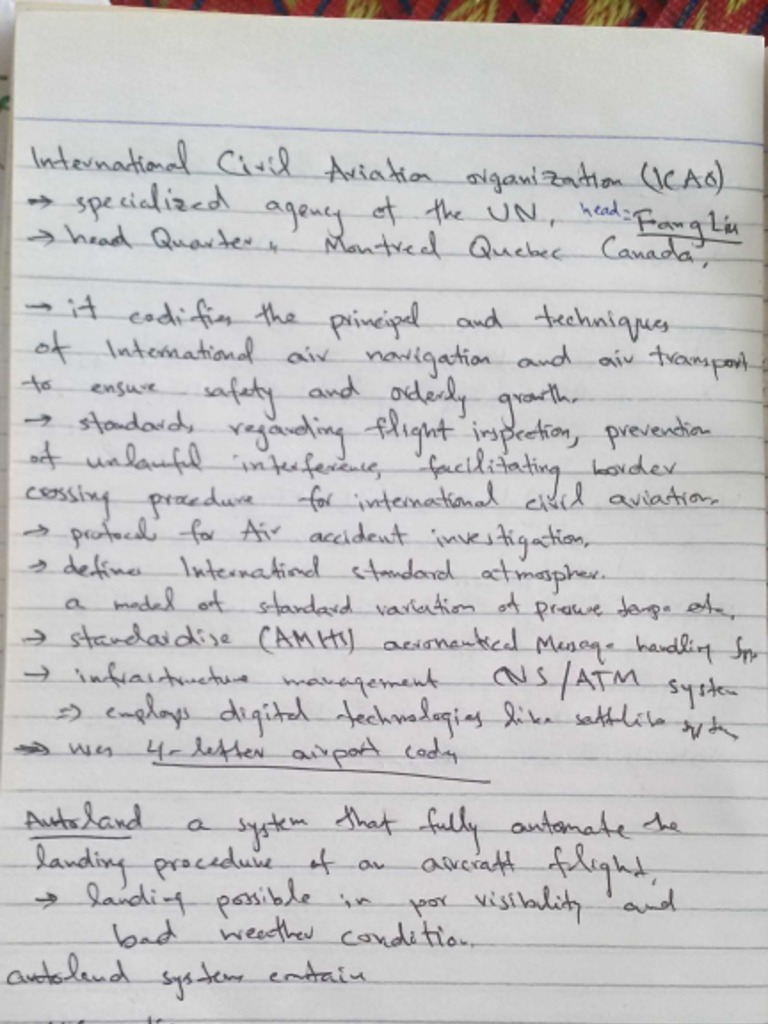 International Civil Aviation organization (ICAO)
→ specialized agency of the UN, head: Fang Liu
→ head Quarter, Montreal Quebec Canada,
→ it codifies the principal and techniques
of International air navigation and air transport
to ensure safety and orderly growth.
→ standards regarding flight inspection, prevention
of unlawful interference, facilitating border
crossing procedure for international civil aviation
→ protocol for Air accident investigation.
→ define International standard atmospher.
a model of standard variation of pressure temp. etc.
→ standardise (AMHS) aeronautical Message handling
→ infrastructure management CNS/ATM system
⇒ employs digital technologies like
→ uses 4-letter airport code
Autoland a system that fully automate the
landing procedure of an aircraft flight.
→ landing possible in poor visibility and
bad weather condition.
autoland system contain